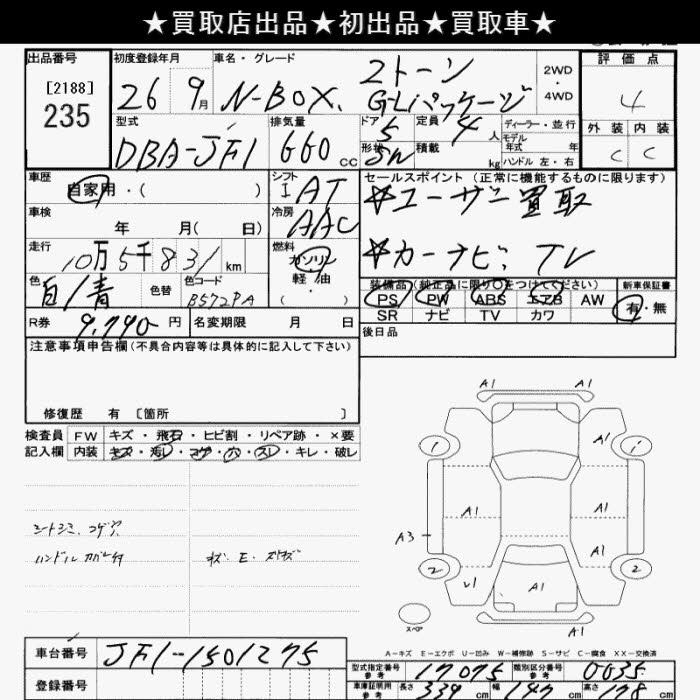 ★買取店出品★初出品★買取車★
出品番号
[2188]
235
初度登録年月
26 9月
車名・グレード
N-BOX. 2トーン G・Lパッケージ
2WD
・
4WD
評価点
4
外装 内装
C C
型式
DBA-JF1
排気量
660 cc
ドア 5
定員 4人
形状 SW
積載 kg
ディーラー・並行
モデル
年式 年
ハンドル 左・右
車歴
自家用・( )
シフト
I AT
セールスポイント(正常に機能するものに限ります)
☆ユーザー買取
☆カーナビ、TV
車検
年 月( 日)
冷房
AAC
走行
10万5千831km
燃料
ガソリン
軽油
( ・ )
色
白/青
色替
色コード
B572PA
装備品(純正品に限り○をつけてください)
PS PW ABS エアB AW
SR ナビ TV カワ
新車保証書
有・無
R券
9,790- 円
名変期限 月 日
後日品
注意事項申告欄(不具合内容等は具体的に記入して下さい)
修復歴 有 〔箇所 〕
検査員
記入欄
FW キズ・飛石・ヒビ割・リペア跡・×要
内装 キズ・汚レ・コゲ・穴・スレ・キレ・破レ
シートシミ、コゲ穴
ハンドルカバー付
A1 A1
1 A1 1
A1 A1
A3 A1
2 U1 A1 2
A1
スペア
A-キズ E-エクボ U-凹み W-補修跡 S-サビ C-腐食 XX-交換済
車台番号
JF1-1501275
登録番号
型式指定番号
参考
17075
類別区分番号
参考
0035
車庫証明用
参考
長さ 339cm 幅 147cm 高さ 178cm